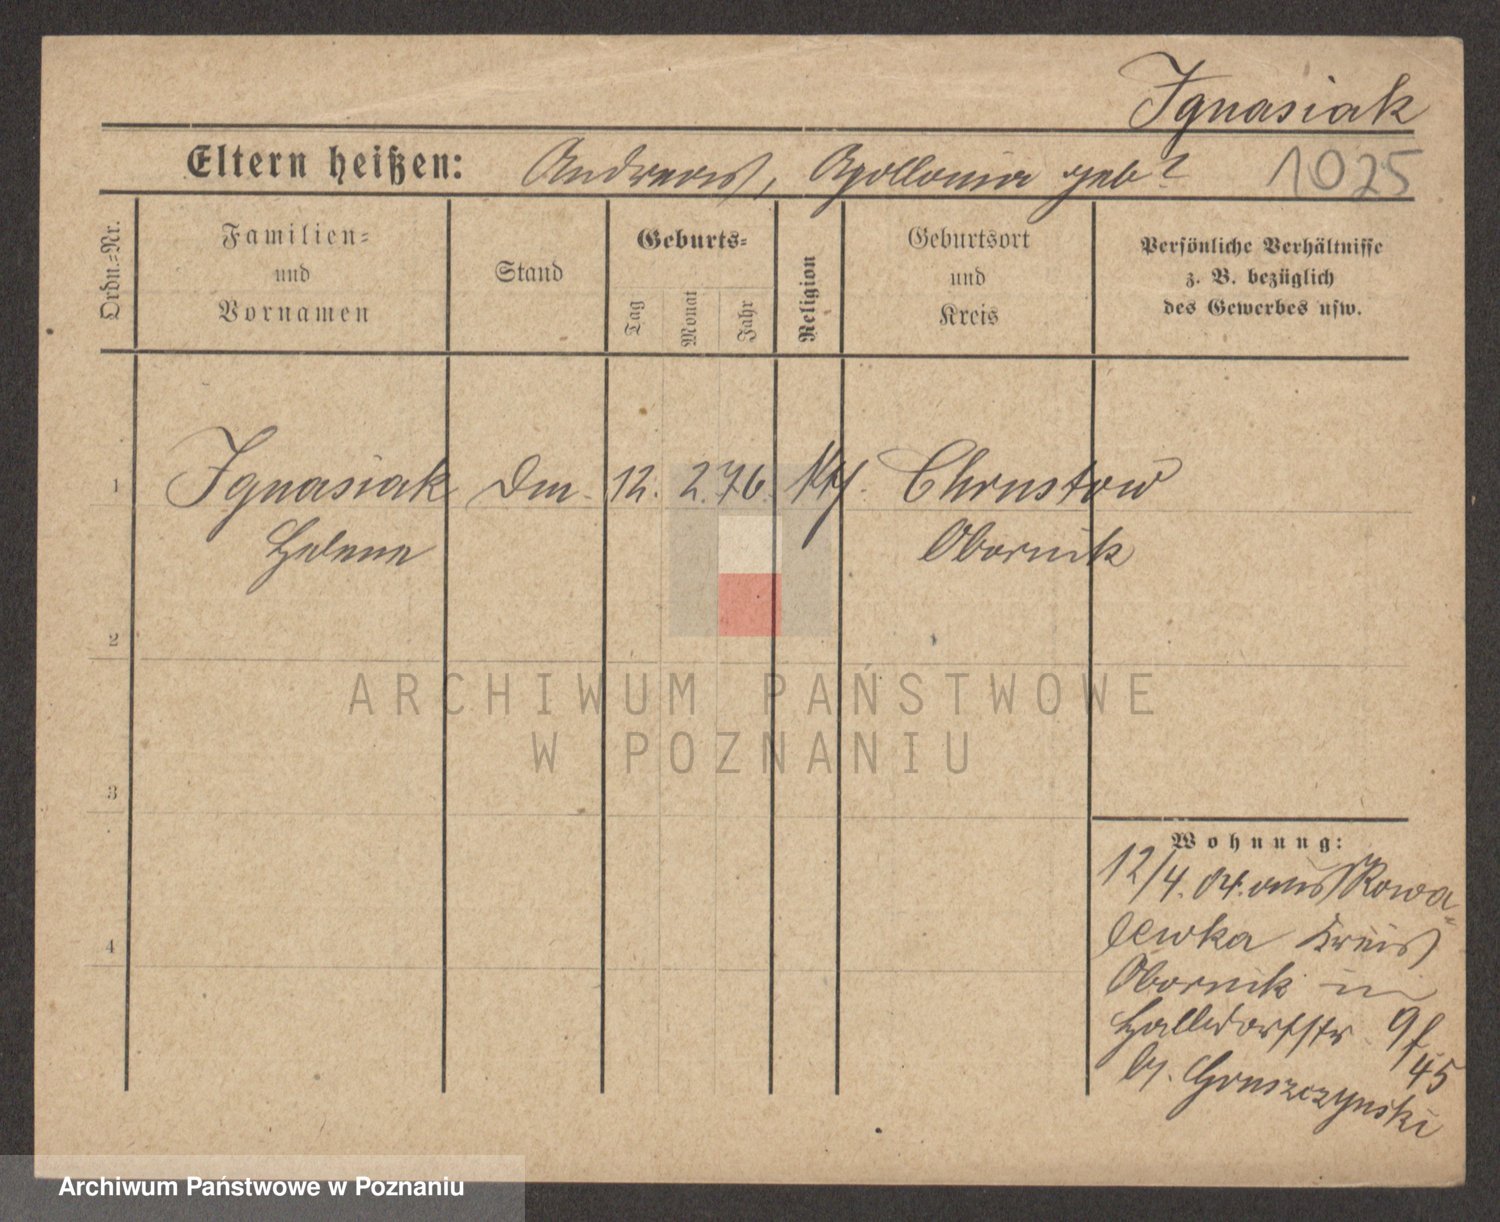 Ignasiak
Eltern heißen: Andreas, Apollonia geb?
1025
Ordn.=Nr.
Familien=
und
Vornamen
Stand
Geburts=
Tag
Monat
Jahr
Religion
Geburtsort
und
Kreis
Persönliche Verhältnisse
z. B. bezüglich
des Gewerbes usw.
1 Ignasiak 12. 2. 76. kth. Chrustow
Helene Obornik
2
3
4
Wohnung:
12/4. 04. aus Kowa=
lewka Kreis
Obornik in
Halldorfstr. 9
45
b/. Gruszczynski
ARCHIWUM PAŃSTWOWE
W POZNANIU
Archiwum Państwowe w Poznaniu